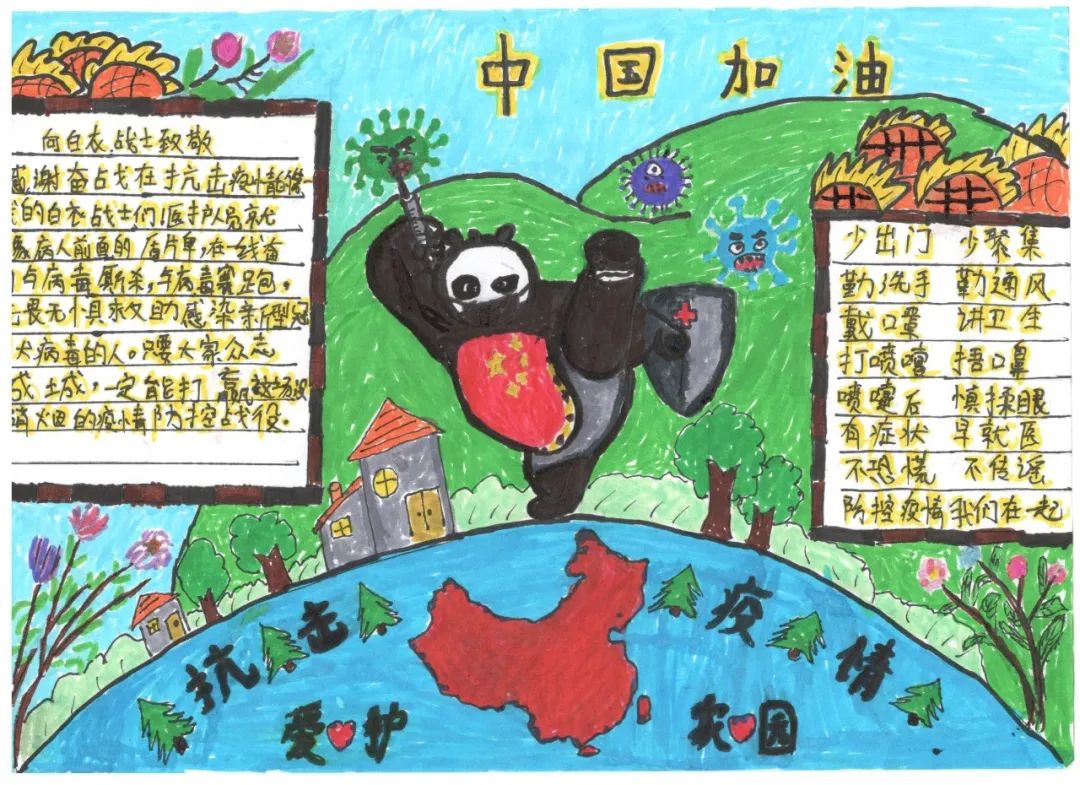 中国加油
向白衣战士致敬
感谢奋战在抗击疫情前线
的白衣战士们!医护人员就
像病人前面的盾片单,在一线奋
与病毒厮杀,与病毒赛跑。
畏无惧救助感染新型冠
犬病毒的人。只要大家众志
成城,一定能打赢这场没
消火因的疫情防控战役。
少出门 少聚集
勤洗手 勤通风
戴口罩 讲卫生
打喷嚏 捂口鼻
喷嚏后 慎揉眼
有症状 早就医
不恐慌 不传谣
防控疫情我们在一起
抗击疫情
爱护家园